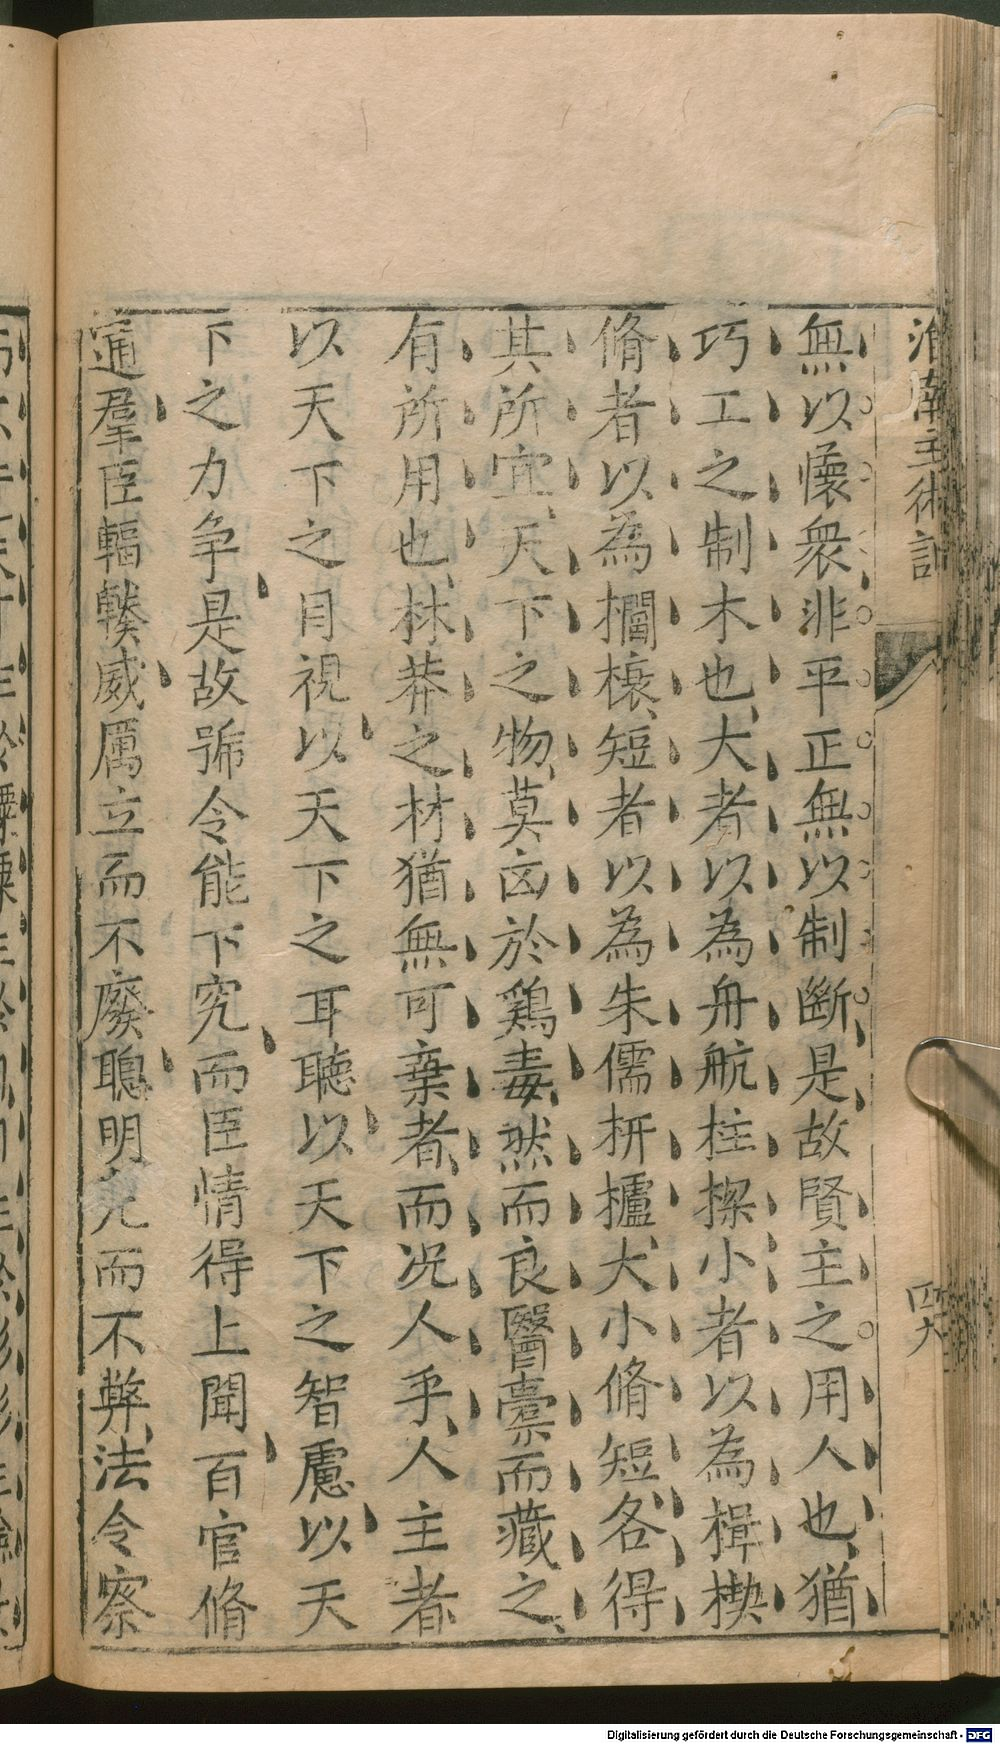 淮南主術訓
四
無以懷衆非平正無以制斷是故賢主之用人也猶
巧工之制木也大者以為舟航柱樑小者以為楫楔
脩者以為櫩榱短者以為朱儒枅櫨大小脩短各得
其所宜天下之物莫凶於鷄毒然而良醫橐而藏之
有所用也林莽之材猶無可棄者而况人乎人主者
以天下之目視以天下之耳聽以天下之智慮以天
下之力争是故號令能下究而臣情得上聞百官脩
通羣臣輻輳威厲立而不廢聰明光而不弊法令察
Digitalisierung gefördert durch die Deutsche Forschungsgemeinschaft - DFG